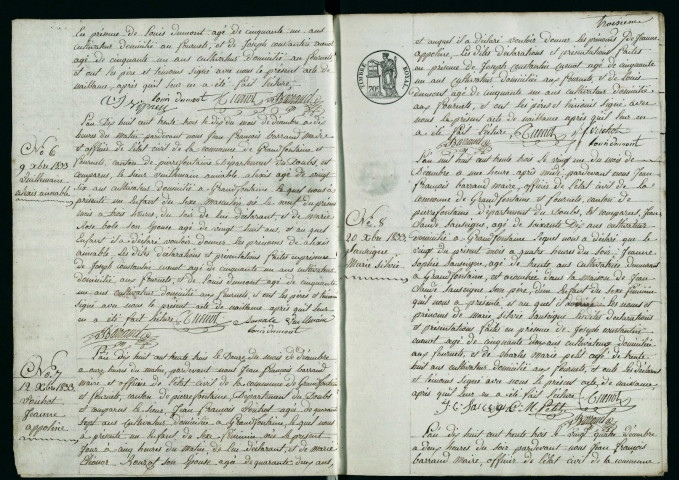 en présence de Louis dumont agé de cinquante un ans
cultivateur domicilié au fournets, et de Joseph constantin cuenot
agé de cinquante un ans cultivateur domicilié au fournets,
et ont les père et témoins signé avec nous le présent acte de
naissance, après qu'il leur en a été fait lecture.
Louis dumont Cuenot Barrand
N.o 6
9 xbre 1833
Vuillemain
alexis aimable
L'an Dix huit cent trente trois le dix du mois de Décembre à dix
heures du matin pardevant nous Jean François barrand Maire
et officier de l'état civil de la commune de Grandfontaine et
Fournets, canton de pierrefontaine Département du Doubs, est
comparu le sieur vuillemain aimable agé de vingt
six ans cultivateur domicilié à Grandfontaine, lequel nous a
présenté un Enfant du sexe Masculin né le neuf du présent
mois à huit heures du soir de lui déclarant, et de marie
Rose bole son épouse agée de vingt huit ans, et au quel
Enfant il a déclaré vouloir donner les prénoms de alexis
aimable, les dites déclarations et présentations faites en présence
de Joseph constantin cuenot agé de cinquante un ans cultivateur
domicilié aux fournets, et de Louis dumont agé de cinquante
un ans cultivateur domicilié aux fournets, et ont les père et témoins
signé avec nous le présent acte de naissance après qu'il leur
en a été fait lecture. Cuenot
aimable Vuillemain
Barrand Louis dumont
N.o 7
12 Xbre 1833
Voichot
Jeanne
appoline
L'an dix huit cent trente trois le Douze du mois de Décembre
à onze heures du matin, pardevant nous Jean François barrand
maire et officier de l'état civil de la commune de Grandfontaine
et Fournets, canton de pierrefontaine, Département du Doubs
est comparu le sieur Jean François Voichot agé de quarante
sept ans cultivateur domicilié à Grandfontaine, lequel nous
a présenté un Enfant de sexe Féminin née le présent
jour à cinq heures du matin, de lui déclarant et de marie
Eléonor Rouzot son épouse agée de quarante deux ans,
troisième
et auquel il a déclaré vouloir donner les prénoms de Jeanne
appoline, les dites déclarations et présentations faites
en présence de Joseph constantin cuenot agé de cinquante
un ans cultivateur domicilié aux fournets, et de Louis
dumont agé de cinquante un ans cultivateur domicilié
aux fournets, et ont les père et témoins signé avec
nous le présent acte de naissance après qu'il leur en
a été fait lecture. Cuenot Voichot
Barrand Louis dumont
TIMBRE ROYAL
N.o 8
20 Xbre 1833
Sauvigne
Marie
L'an mil huit cent trente trois le vingt un du mois de
Décembre à une heure après midi, pardevant nous Jean
François barrand maire, officier de l'état civil de la
commune de Grandfontaine et Fournets, canton de
pierrefontaine département du Doubs, est comparu Jean
Claude Sauvigne, agé de soixante dix ans cultivateur
domicilié à Grandfontaine lequel nous a déclaré que le
vingt du présent mois à quatre heures du soir, Jeanne
Sophie Sauvigne, agée de trente ans cultivatrice demeurant
à Grandfontaine, est accouchée dans la maison de Jean
Claude Sauvigne son père, d'un Enfant du sexe féminin
qu'il nous a présenté et au quel il donne les noms et
prénoms de Marie Sauvigne les dites déclarations
et présentations faites en présence de Joseph constantin
cuenot agé de cinquante un ans cultivateur domicilié
aux fournets, et de Charles Marie petit agé de trente
huit ans cultivateur domicilié aux fournets, et ont les déclarant
et témoins signé avec nous le présent acte de naissance,
après qu'il leur en a été fait lecture Cuenot
C. M. Petit
Barrand
L'an dix huit cent trente trois le vingt quatre décembre
à deux heures du soir pardevant nous Jean François
barrand Maire, officier de l'état civil de la commune